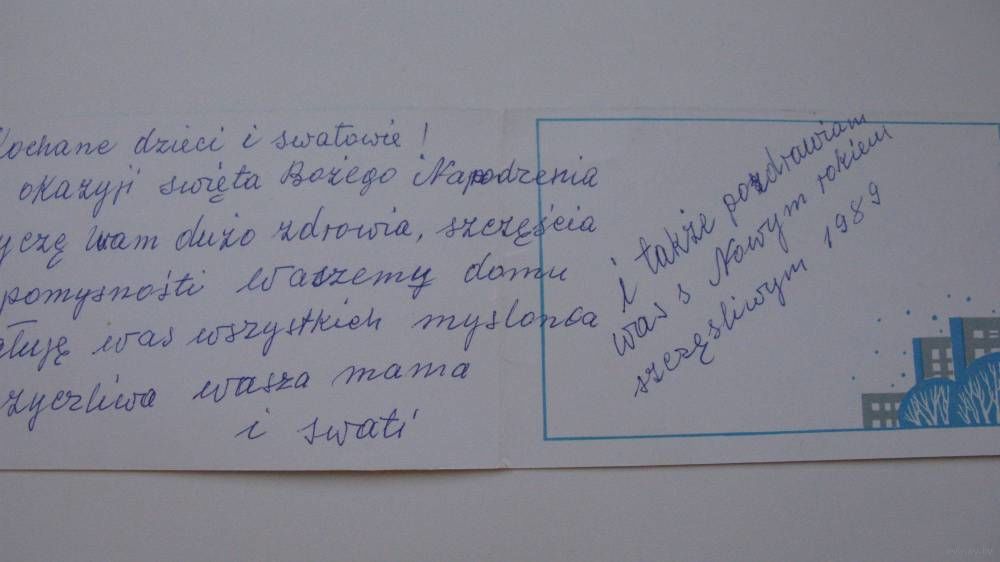 Kochane dzieci i swatowie!
okazyji święta Bożego Napodzenia
yczę wam dużo zdrowia, szczęścia
pomysności Waszemy domu
ałuję was wszystkich myslonca
zyczliwa wasza mama
i swati
i także pozdrawiam
was s Nowym rokiem
szczęsliwym 1989